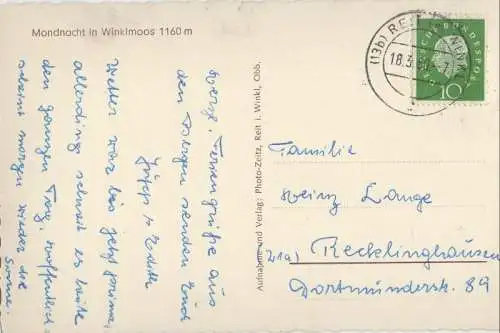 Mondnacht in Winklmoos 1160 m
Herzl. Feriengrüße aus
den Bergen senden Euch
Jupp & Edith
Wetter war bis jetzt prima,
allerdings schneit es heute
den ganzen Tag, hoffentlich
scheint morgen wieder die
Sonne.
Aufnahme und Verlag: Photo-Zeitz, Reit i. Winkl, Obb.
(13b) REIT
18.3.
DEUTSCHE BUNDESPOST
10
Familie
Heinz Lange
21a) Recklinghausen
Dortmunderstr. 89